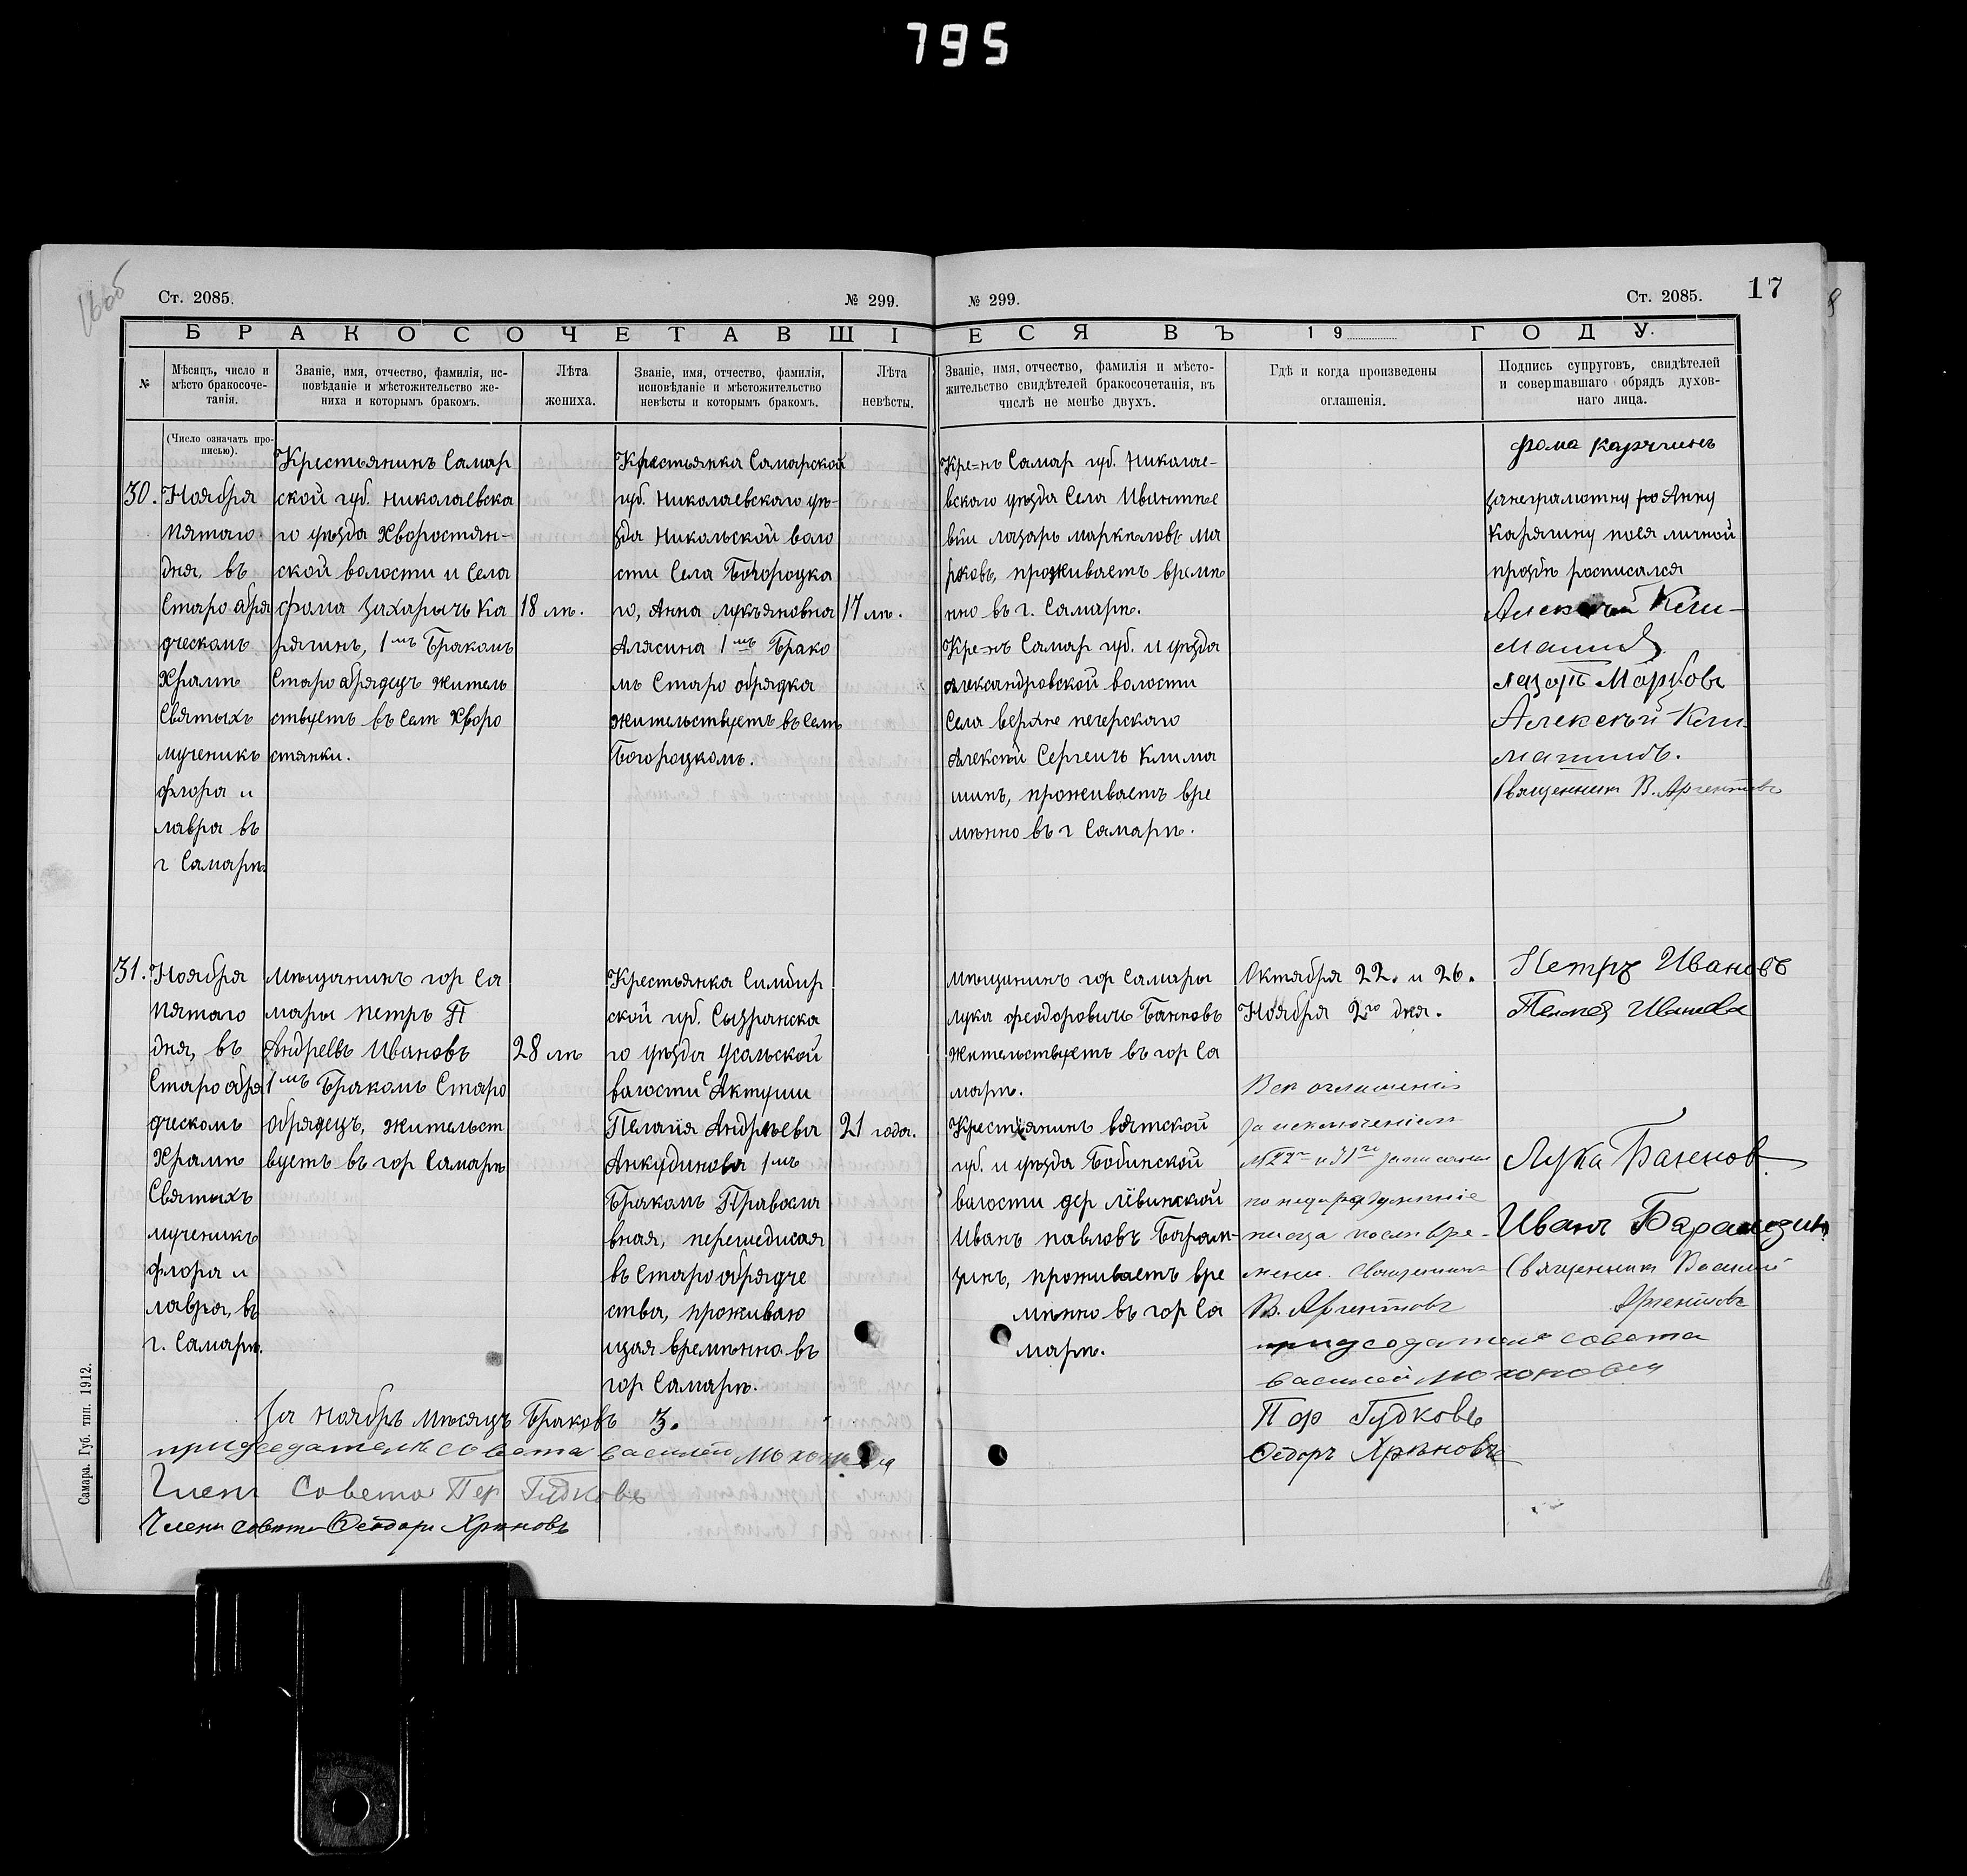 795
166б
Ст. 2085.
№ 299.
№ 299.
Ст. 2085.
17
БРАКОСОЧЕТАВШІЕСЯ ВЪ 19 ГОДУ.
№
Мѣсяцъ, число и
мѣсто бракосоче-
танія.
Званіе, имя, отчество, фамилія, ис-
повѣданіе и мѣстожительство же-
ниха и которымъ бракомъ.
Лѣта
жениха.
Званіе, имя, отчество, фамилія,
исповѣданіе и мѣстожительство
невѣсты и которымъ бракомъ.
Лѣта
невѣсты.
Званіе, имя, отчество, фамилія и мѣсто-
жительство свидѣтелей бракосочетанія, въ
числѣ не менѣе двухъ.
Гдѣ и когда произведены
оглашенія.
Подпись супруговъ, свидѣтелей
и совершавшаго обрядъ духов-
наго лица.
(Число означать про-
писью).
30.
Ноября
пятаго
дня, въ
Старо обря
дческомъ
Храмѣ
Святыхъ
мученикъ
флора и
лавра въ
г Самарѣ.
Крестьянинъ Самар
ской губ. Николаевска
го уѣзда Хворостян-
ской волости и Села
фома Захарычъ Ка
рягинъ, 1мъ Бракомъ
Старо обрядецъ житель
ствуетъ въ Селѣ Хворо
стянки.
18 лѣ.
Крестьянка Самарской
губ. Николаевскаго уѣ-
зда Никольской воло
сти Села Богороцка
го, Анна лукъяновна
Алясина 1мъ Брако
мъ Старо обрядка
жительствуетъ въ Селѣ
Богороцкомъ.
17 лѣ.
Кре=нъ Самар губ. Николае-
вскаго уѣзда Села
лазарь
проживаетъ времѣ
нно въ г. Самарѣ.
Кре=нъ Самар губ. и уѣзда
александровской волости
Села верхне печерскаго
Алексѣй Сергеичъ Клима
шинъ, проживаетъ вре
мѣнно въ г Самарѣ.
фома Карягинъ
занеграмотну ю Анну
Карягину по ея личной
прозбѣ росписался
Алексѣй Кли-
машинъ
лазарь Марковъ
Алексѣй Кли-
машинъ.
Священникъ В. Аргентовъ
31.
Ноября
пятаго
дня, въ
Старо обря
дческомъ
Храмѣ
Святыхъ
мученикъ
флора и
лавра, въ
г. Самарѣ.
мѣщанинъ гор Са
мары петръ П
Андреевъ Ивановъ
1мъ Бракомъ Старо
обрядецъ, жительст
вуетъ въ гор Самарѣ
28 лѣ
Крестьянка Симбир
ской губ. Сызранска
го уѣзда Усольской
валости С Актуши
Пелагія Андрѣева
Анкудинова 1мъ
Бракомъ Правосла
вная, перешедшая
въ Старообрядче
ства, проживаю
щая времѣнно въ
гор Самарѣ.
21 года.
мѣщанинъ гор Самары
лука феодоровичь Баж
жительствуетъ въ гор Са
марѣ.
Крестьянинъ вятской
губ. и уѣзда Бобинской
валости дер лёвинской
Иванъ павловъ Барам-
зинъ, проживаетъ вре
мѣнно въ гор Са
марѣ.
Октября 22. и 26.
Ноября 2го дня.
Всѣ оглашенія
за исключеніемъ
по недоразуменіе
писца после вре-
мени. Священникъ
В. Аргентовъ
придседатель совета
василей
П ф Гудковъ
Ѳедоръ Хрѣновъ
Петръ Ивановъ
Пелагея Иванова
Лука Баженов
Иванъ Барамзинъ
Священникъ Василій
Аргентовъ
За ноябрь мѣсяцъ Браковъ 3.
придседатель совета василей
Членъ Совета Пер Гудковъ
Членъ совета Ѳеодоръ Хрѣновъ
Самара. Губ. тип. 1912.